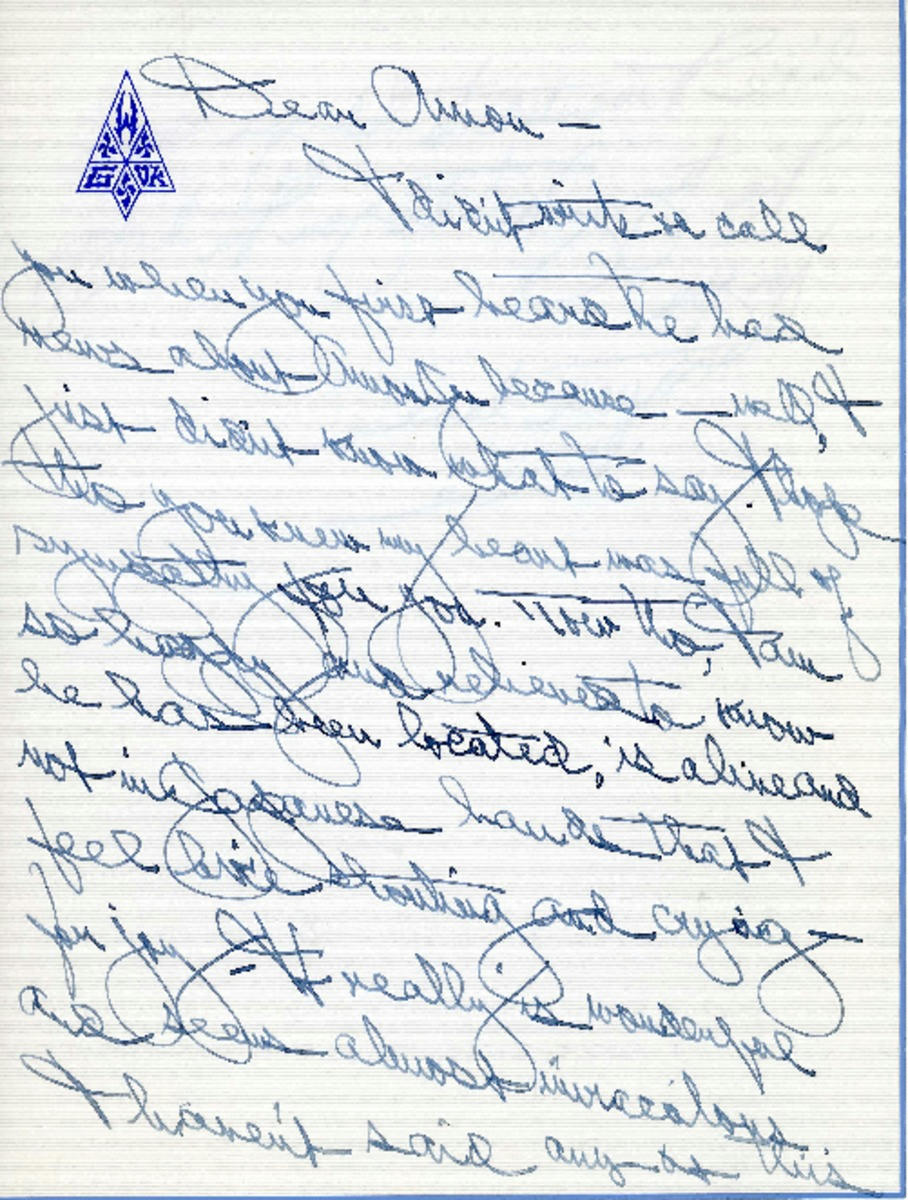 Dear Amon —
I didn't write or call
you when you first heard the bad
news about Amon Jr. because — well, I
just didn't know what to say. I hope
tho you knew my heart was full of
sympathy for you. Now tho, I am
so happy and relieved to know
he has been located, is alive and
not in Japanese hands that I
feel like shouting and crying
for joy. It really is wonderful
and seems almost miraculous
I haven't said any of this